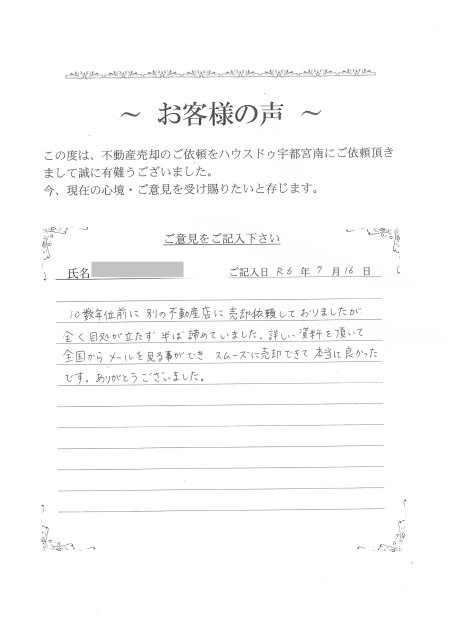 ～ お客様の声 ～
この度は、不動産売却のご依頼をハウスドゥ宇都宮南にご依頼頂き
まして誠に有難うございました。
今、現在の心境・ご意見を受け賜りたいと存じます。
ご意見をご記入下さい
氏名
ご記入日 R6 年 7 月 16 日
10数年位前に 別の不動産店に売却依頼しておりましたが
全く目処が立たず 半ば諦めていました。詳しい資料を頂いて
全国から メールを見る事ができ スムーズに売却できて 本当に良かった
です。ありがとうございました。